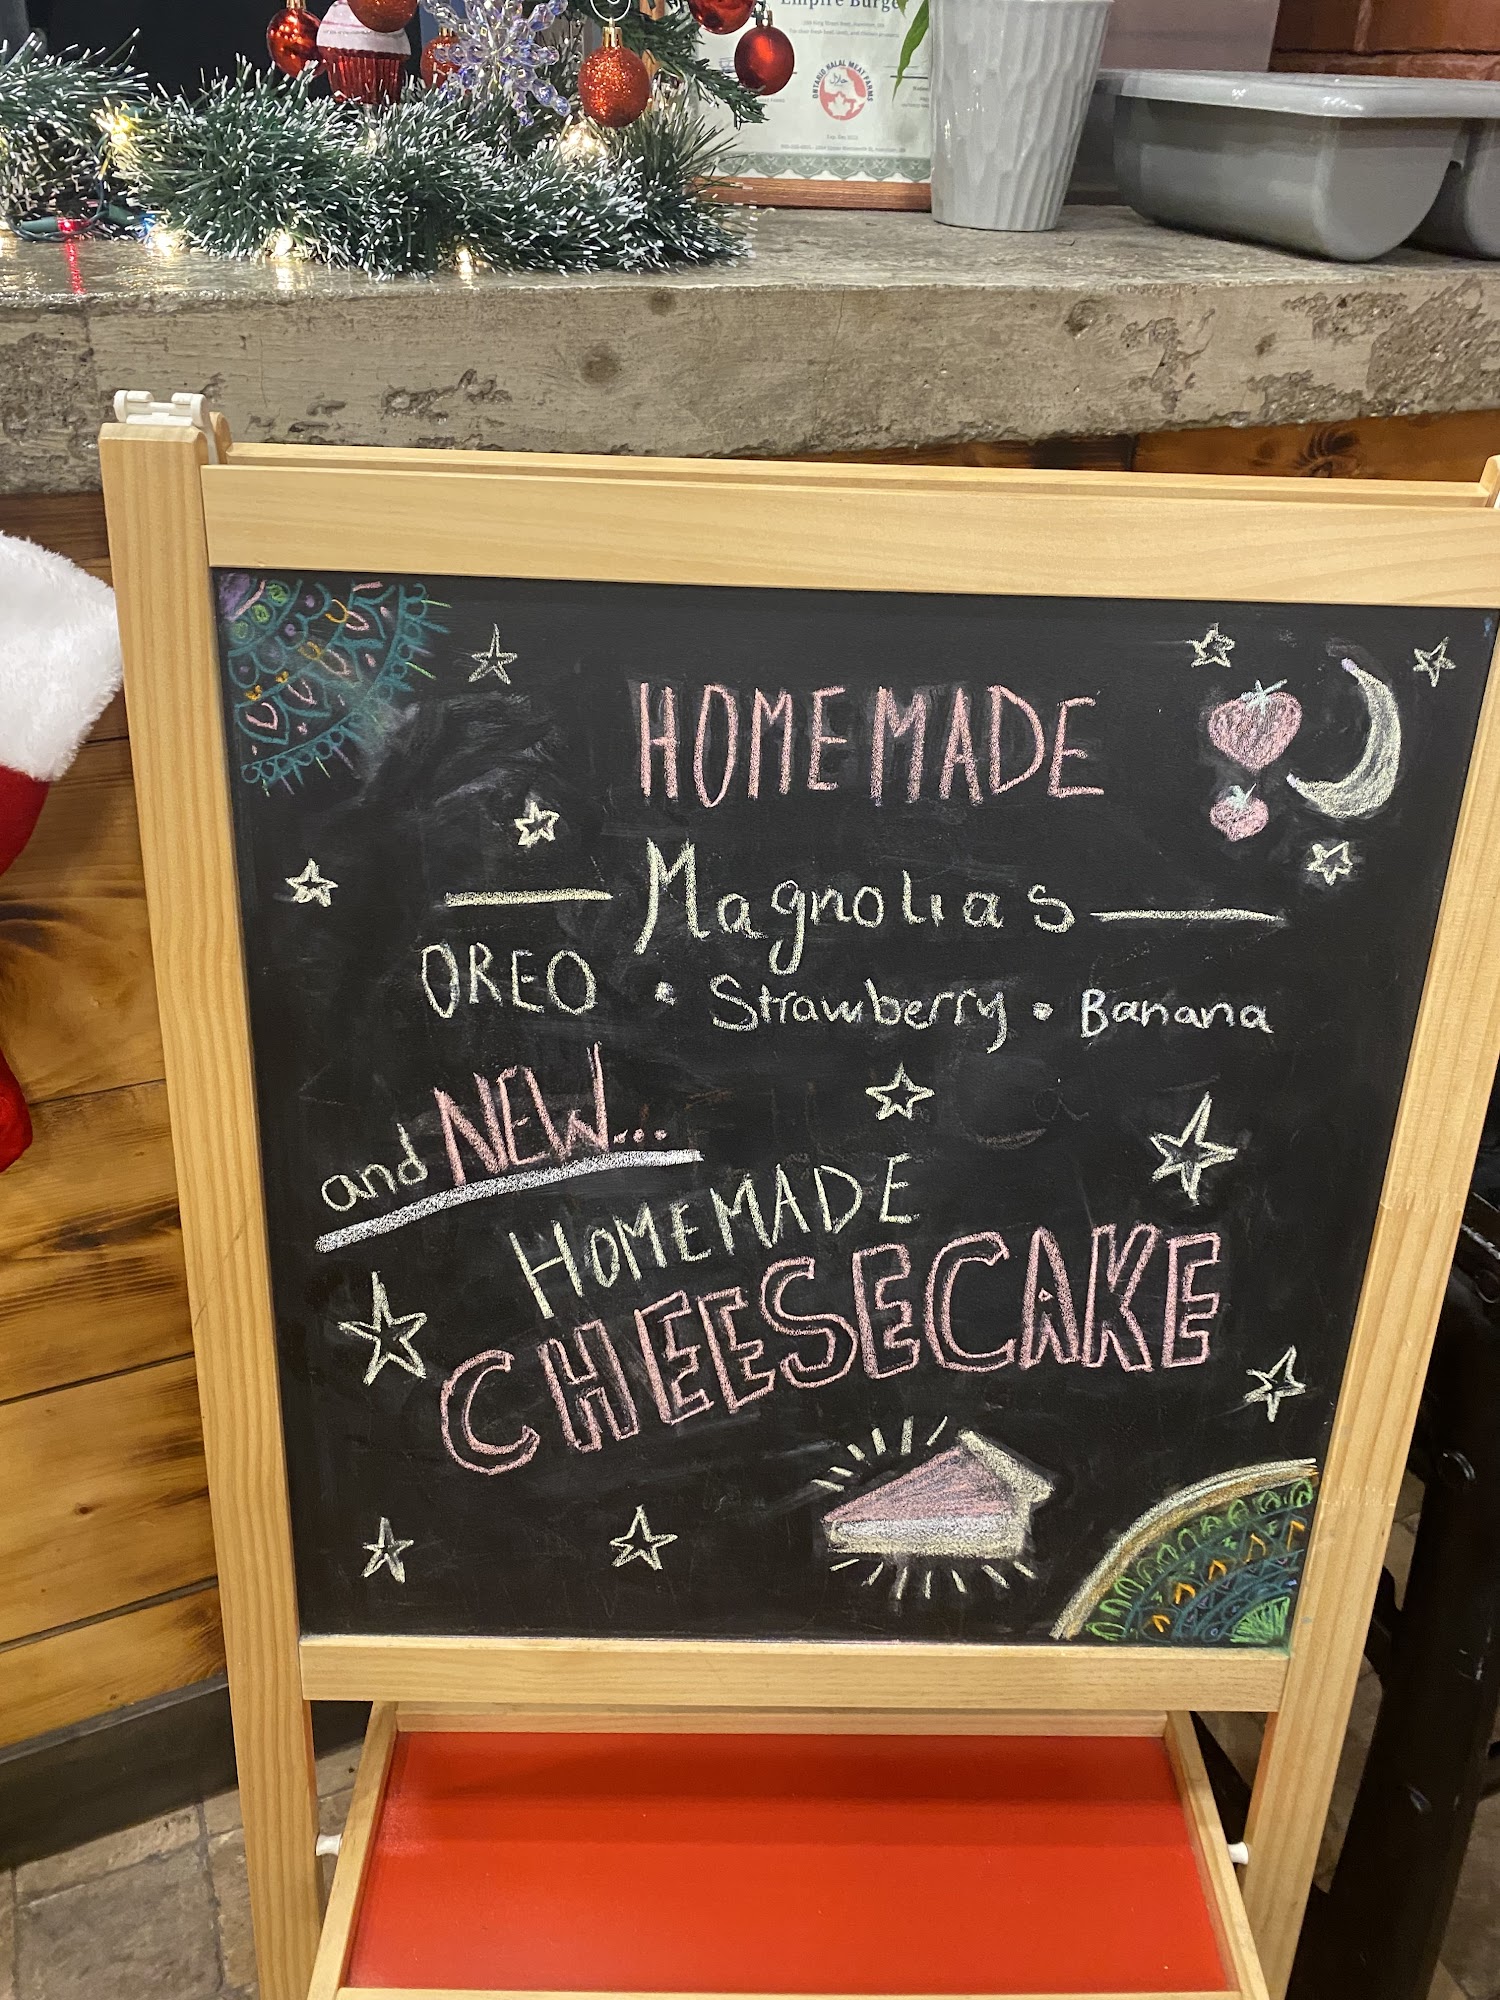 Empire Burge
ONTARIO HALAL MEAT FARMS
HOMEMADE
Magnolias
OREO • Strawberry • Banana
and NEW...
HOMEMADE
CHEESECAKE